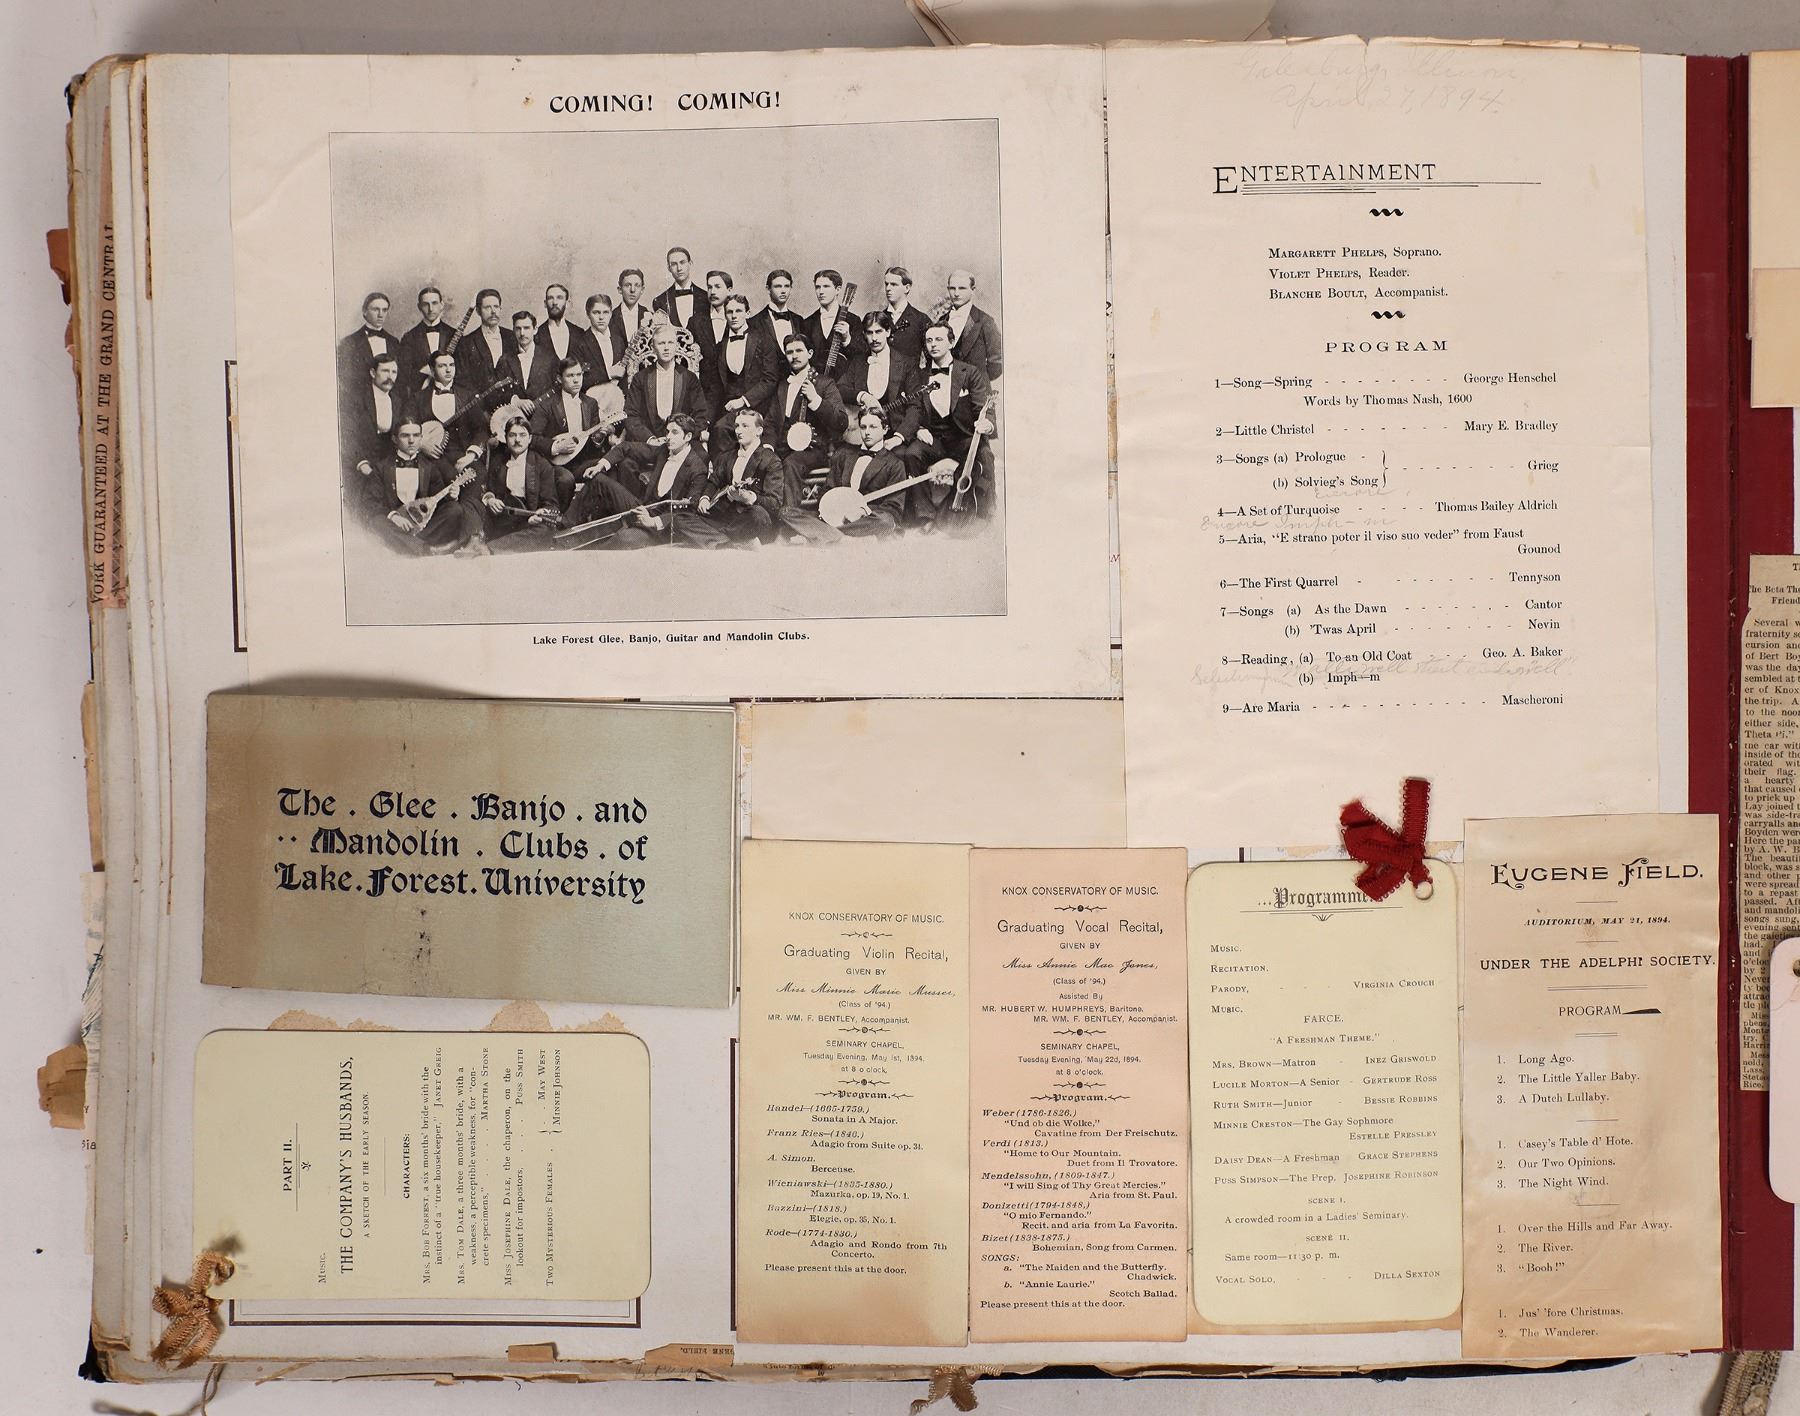 WORK GUARANTEED AT THE GRAND CENTRAL
COMING! COMING!
Lake Forest Glee, Banjo, Guitar and Mandolin Clubs.
Galesburg, Illinois,
April 27, 1894.
ENTERTAINMENT
MARGARETT PHELPS, Soprano.
VIOLET PHELPS, Reader.
BLANCHE BOULT, Accompanist.
PROGRAM
1—Song—Spring - - - - - - - - George Henschel
Words by Thomas Nash, 1600
2—Little Christel - - - - - - - Mary E. Bradley
3—Songs (a) Prologue - } - - - - - - - Grieg
(b) Solvieg's Song
Encore
4—A Set of Turquoise - - - - Thomas Bailey Aldrich
Encore Imph-m
5—Aria, "E strano poter il viso suo veder" from Faust
Gounod
6—The First Quarrel - - - - - - - Tennyson
7—Songs (a) As the Dawn - - - - - - - Cantor
(b) 'Twas April - - - - - - - Nevin
8—Reading, (a) To an Old Coat - - - Geo. A. Baker
(b) Imph—m
9—Are Maria - - - - - - - - - - - Mascheroni
The . Glee . Banjo . and
·· Mandolin . Clubs . of
Lake . Forest . University
PART II.
MUSIC.
THE COMPANY'S HUSBANDS,
A SKETCH OF THE EARLY SEASON.
CHARACTERS:
MRS. BOB FORREST, a six months' bride with the
instinct of a "true housekeeper," JANET GREIG
MRS. TOM DALE, a three months' bride, with a
weakness, a perceptible weakness, for "con-
crete specimens," . . . . MARTHA STONE
MISS JOSEPHINE DALE, the chaperon, on the
lookout for impostors, . . . PUSS SMITH
TWO MYSTERIOUS FEMALES . { . . MAY WEST
{ MINNIE JOHNSON
KNOX CONSERVATORY OF MUSIC.
Graduating Violin Recital,
GIVEN BY
Miss Minnie Marie Musser,
(Class of '94.)
MR. WM. F. BENTLEY, Accompanist.
SEMINARY CHAPEL,
Tuesday Evening, May 1st, 1894.
at 8 o'clock.
Program.
Handel—(1665-1759.)
Sonata in A Major.
Franz Ries—(1846.)
Adagio from Suite op. 34.
A. Simon.
Berceuse.
Wieniawski—(1835-1880.)
Mazurka, op. 19, No. 1.
Bazzini—(1818.)
Elegie, op. 35, No. 1.
Rode—(1774-1830.)
Adagio and Rondo from 7th
Concerto.
Please present this at the door.
KNOX CONSERVATORY OF MUSIC.
Graduating Vocal Recital,
GIVEN BY
Miss Annie Mae Jones,
(Class of '94.)
Assisted By
MR. HUBERT W. HUMPHREYS, Baritone.
MR. WM. F. BENTLEY, Accompanist.
SEMINARY CHAPEL,
Tuesday Evening, May 22d, 1894.
at 8 o'clock.
Program.
Weber (1786-1826.)
"Und ob die Wolke,"
Cavatine from Der Freischutz.
Verdi (1813.)
"Home to Our Mountain.
Duet from Il Trovatore.
Mendelssohn, (1809-1847.)
"I will Sing of Thy Great Mercies."
Aria from St. Paul.
Donizetti (1794-1848,)
"O mio Fernando."
Recit. and aria from La Favorita.
Bizet (1838-1875.)
Bohemian, Song from Carmen.
SONGS:
a. "The Maiden and the Butterfly.
Chadwick.
b. "Annie Laurie."
Scotch Ballad.
Please present this at the door.
...Programme
MUSIC.
RECITATION.
PARODY, - - VIRGINIA CROUCH
MUSIC.
FARCE.
"A FRESHMAN THEME."
MRS. BROWN—Matron - INEZ GRISWOLD
LUCILE MORTON—A Senior - GERTRUDE ROSS
RUTH SMITH—Junior - BESSIE ROBBINS
MINNIE CRESTON—The Gay Sophmore
ESTELLE PRESSLEY
DAISY DEAN—A Freshman GRACE STEPHENS
PUSS SIMPSON—The Prep. JOSEPHINE ROBINSON
SCENE I.
A crowded room in a Ladies' Seminary.
SCENE II.
Same room—11:30 p. m.
VOCAL SOLO, - - - DILLA SEXTON
EUGENE FIELD.
AUDITORIUM, MAY 21, 1894.
UNDER THE ADELPHI SOCIETY.
PROGRAM
1. Long Ago.
2. The Little Yaller Baby.
3. A Dutch Lullaby.
1. Casey's Table d' Hote.
2. Our Two Opinions.
3. The Night Wind.
1. Over the Hills and Far Away.
2. The River.
3. "Booh!"
1. Jus' 'fore Christmas.
2. The Wanderer.
The Beta The
Friend
Several w
fraternity so
cursion and
of Bert Boy
was the day
sembled at t
er of Knox
the trip. A
to the noon
either side,
Theta Pi."
the car with
inside of the
orated with
their flag.
a hearty
that caused
to prick up
Lay joined t
was side-tra
carryalls and
Boyden were
Here the par
by A. W. B
The beauti
block, was s
and other p
were spread
to a repast
passed. Aft
and mandoli
songs sung,
evening sent
the gaieties
had.